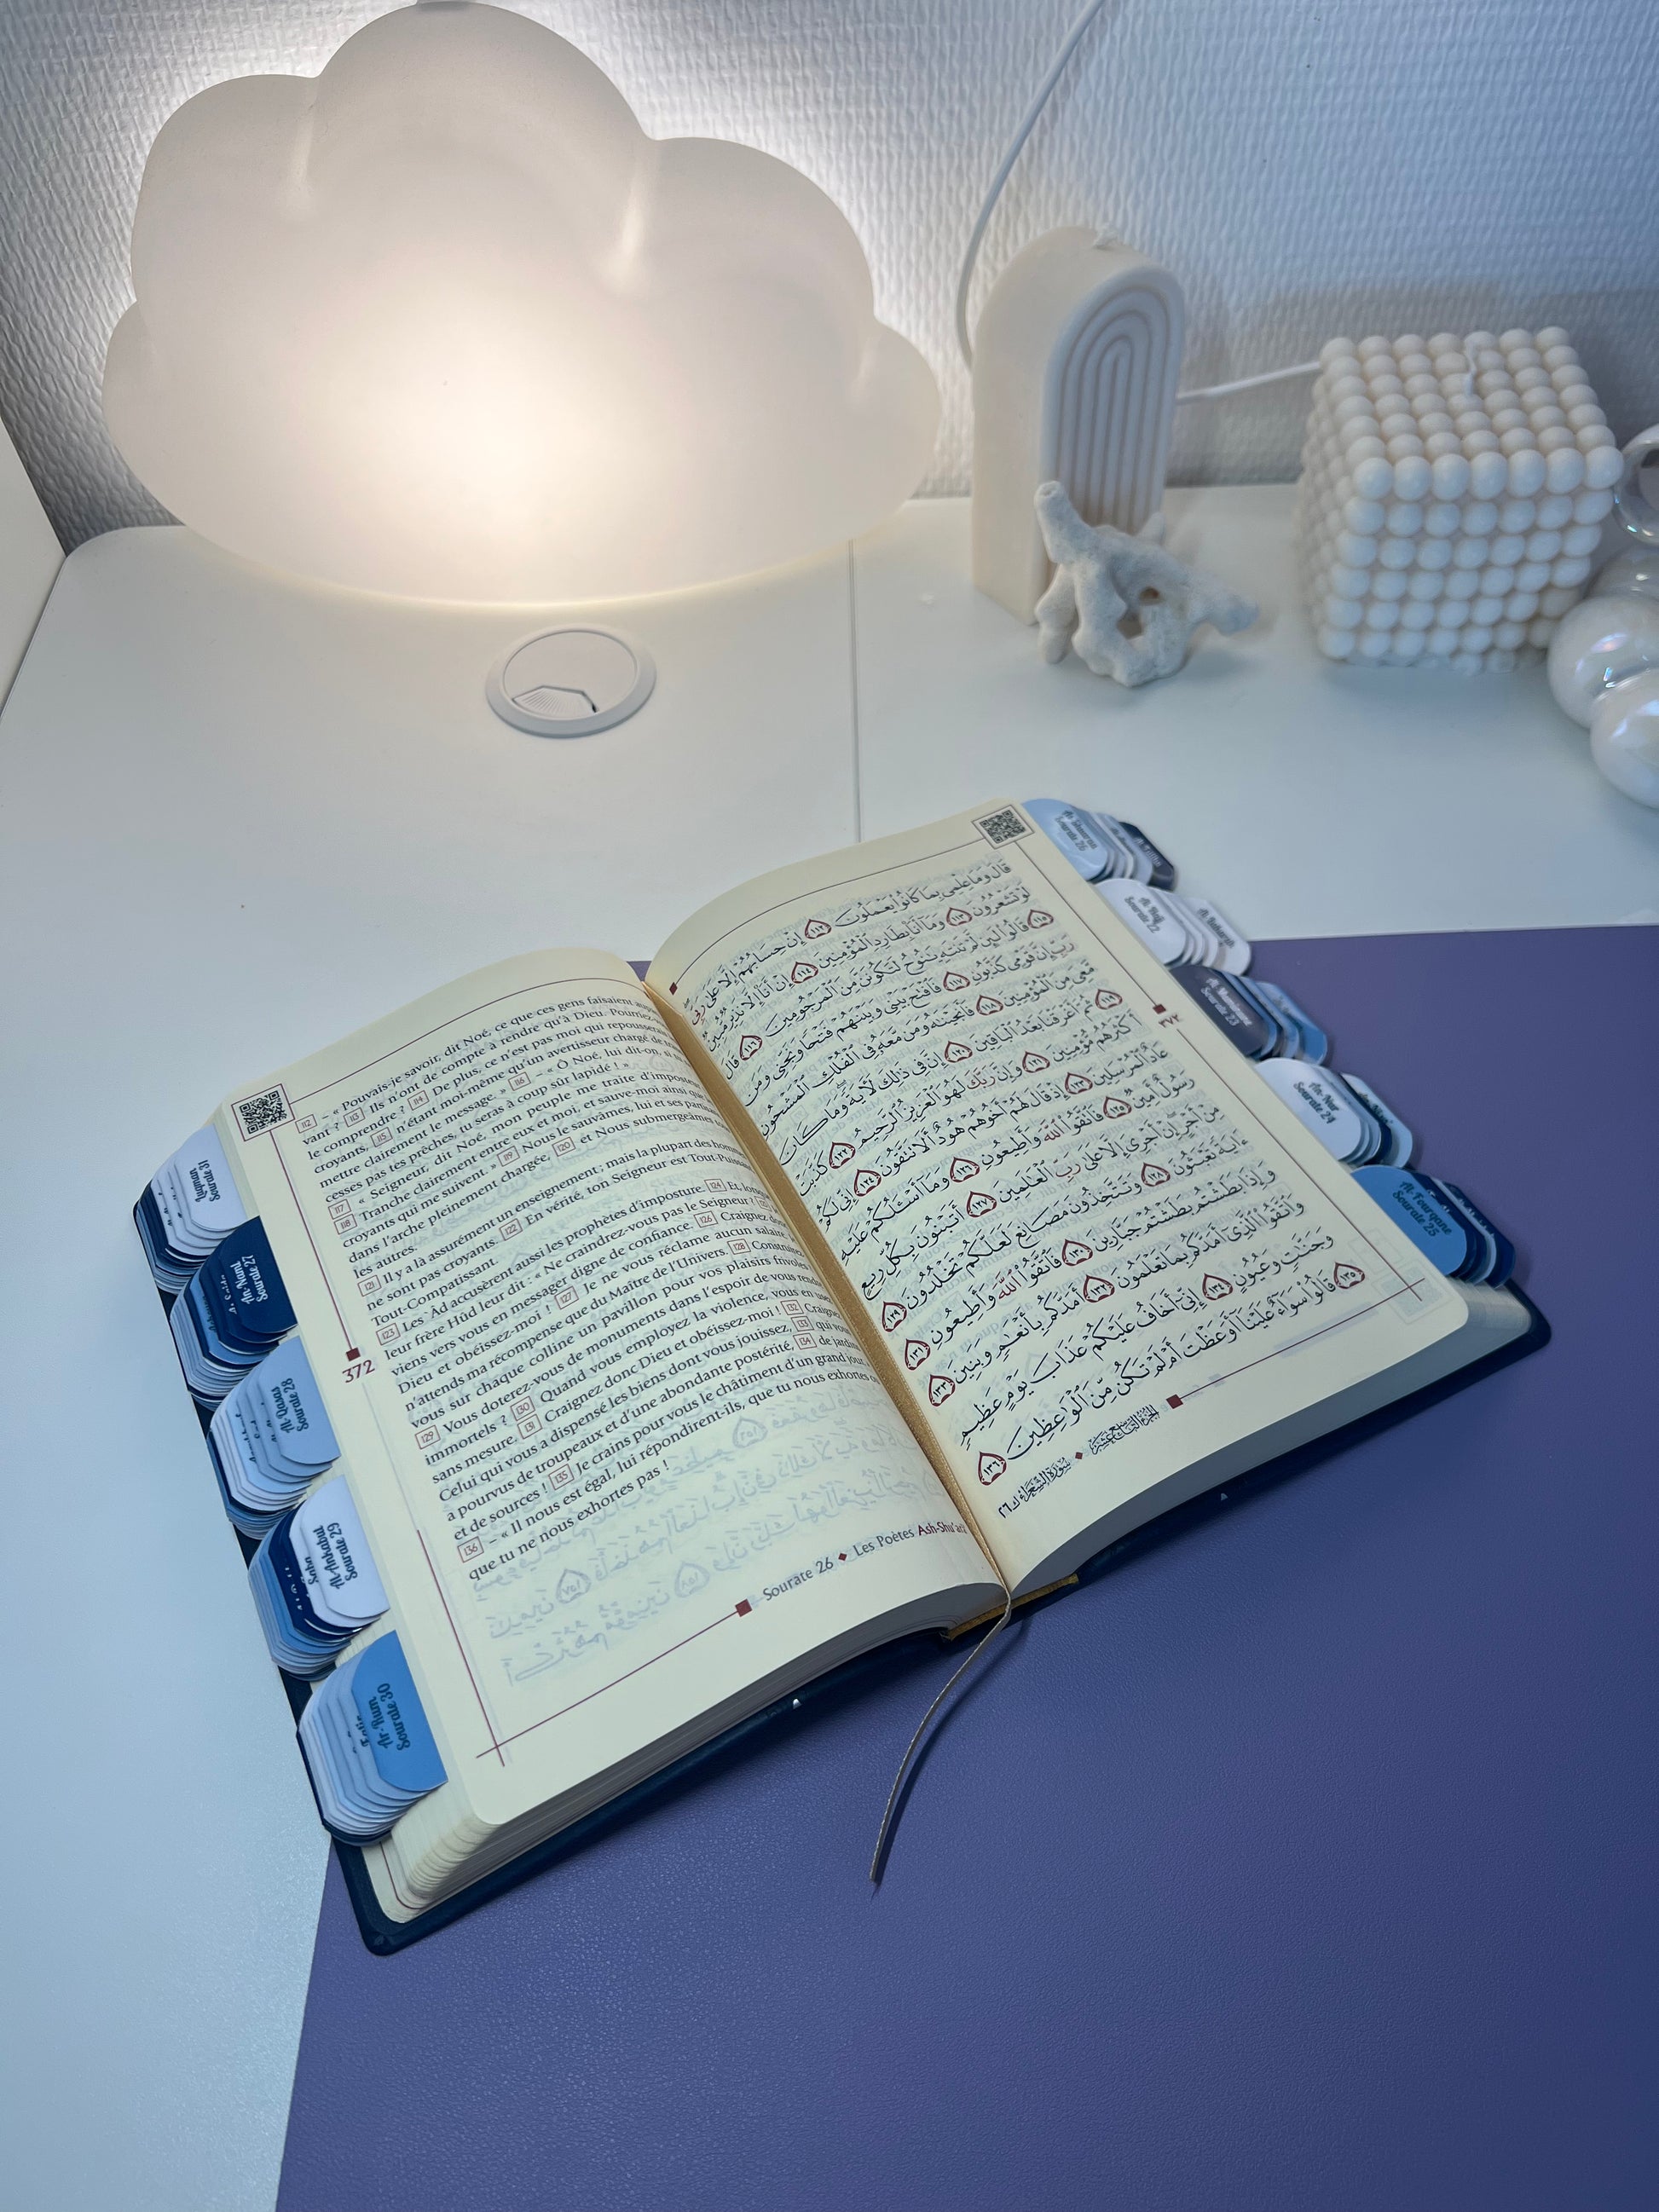 112 – « Pouvais-je savoir, dit Noé, ce que ces gens faisaient
vant ? 113 Ils n'ont de compte à rendre qu'à Dieu. Pourriez-
le comprendre ? 114 De plus, ce n'est pas moi qui repousserai
croyants, 115 n'étant moi-même qu'un avertisseur chargé de
mettre clairement le message. » 116 – « Ô Noé, lui dit-on, si
cesses pas tes prêches, tu seras à coup sûr lapidé ! »
117 « Seigneur, dit Noé, mon peuple me traite d'imposteur
118 Tranche clairement entre eux et moi, et sauve-moi ainsi que
croyants qui me suivent. » 119 Nous le sauvâmes, lui et ses
dans l'arche pleinement chargée, 120 et Nous submergeâmes
les autres.
121 Il y a là assurément un enseignement ; mais la plupart des hommes
ne sont pas croyants. 122 En vérité, ton Seigneur est Tout-Puissant
Tout-Compatissant.
123 Les 'Âd accusèrent aussi les prophètes d'imposture. 124 Et, lorsque
leur frère Hûd leur dit : « Ne craindrez-vous pas le Seigneur ?
viens vers vous en messager digne de confiance. 126 Craignez donc
Dieu et obéissez-moi ! 127 Je ne vous réclame aucun salaire
n'attends ma récompense que du Maître de l'Univers. 128 Construirez
vous sur chaque colline un pavillon pour vos plaisirs frivoles
129 Vous doterez-vous de monuments dans l'espoir de vous rendre
immortels ? 130 Quand vous employez la violence, vous en usez
sans mesure. 131 Craignez donc Dieu et obéissez-moi ! 132 Craignez
Celui qui vous a dispensé les biens dont vous jouissez, 133 qui vous
a pourvus de troupeaux et d'une abondante postérité, 134 de jardins
et de sources ! 135 Je crains pour vous le châtiment d'un grand jour.
136 – « Il nous est égal, lui répondirent-ils, que tu nous exhortes ou
que tu ne nous exhortes pas !
372
Sourate 26 ◆ Les Poètes Ash-Shu'arâ
قَالَ وَمَا عِلْمِى بِمَا كَانُوا۟ يَعْمَلُونَ ١١٢ إِنْ حِسَابُهُمْ إِلَّا عَلَىٰ رَبِّى
لَوْ تَشْعُرُونَ ١١٣ وَمَآ أَنَا۠ بِطَارِدِ ٱلْمُؤْمِنِينَ ١١٤ إِنْ أَنَا۠ إِلَّا نَذِيرٌ مُّبِينٌ
١١٥ قَالُوا۟ لَئِن لَّمْ تَنتَهِ يَـٰنُوحُ لَتَكُونَنَّ مِنَ ٱلْمَرْجُومِينَ ١١٦ قَالَ
رَبِّ إِنَّ قَوْمِى كَذَّبُونِ ١١٧ فَٱفْتَحْ بَيْنِى وَبَيْنَهُمْ فَتْحًا وَنَجِّنِى وَمَن
مَّعِىَ مِنَ ٱلْمُؤْمِنِينَ ١١٨ فَأَنجَيْنَـٰهُ وَمَن مَّعَهُۥ فِى ٱلْفُلْكِ ٱلْمَشْحُونِ
١١٩ ثُمَّ أَغْرَقْنَا بَعْدُ ٱلْبَاقِينَ ١٢٠ إِنَّ فِى ذَٰلِكَ لَـَٔايَةً وَمَا كَانَ
أَكْثَرُهُم مُّؤْمِنِينَ ١٢١ وَإِنَّ رَبَّكَ لَهُوَ ٱلْعَزِيزُ ٱلرَّحِيمُ ١٢٢ كَذَّبَتْ
عَادٌ ٱلْمُرْسَلِينَ ١٢٣ إِذْ قَالَ لَهُمْ أَخُوهُمْ هُودٌ أَلَا تَتَّقُونَ ١٢٤ إِنِّى لَكُمْ
رَسُولٌ أَمِينٌ ١٢٥ فَٱتَّقُوا۟ ٱللَّهَ وَأَطِيعُونِ ١٢٦ وَمَآ أَسْـَٔلُكُمْ عَلَيْهِ
مِنْ أَجْرٍ إِنْ أَجْرِىَ إِلَّا عَلَىٰ رَبِّ ٱلْعَـٰلَمِينَ ١٢٧ أَتَبْنُونَ بِكُلِّ رِيعٍ
ءَايَةً تَعْبَثُونَ ١٢٨ وَتَتَّخِذُونَ مَصَانِعَ لَعَلَّكُمْ تَخْلُدُونَ ١٢٩
وَإِذَا بَطَشْتُم بَطَشْتُمْ جَبَّارِينَ ١٣٠ فَٱتَّقُوا۟ ٱللَّهَ وَأَطِيعُونِ ١٣١
وَٱتَّقُوا۟ ٱلَّذِىٓ أَمَدَّكُم بِمَا تَعْلَمُونَ ١٣٢ أَمَدَّكُم بِأَنْعَـٰمٍ وَبَنِينَ ١٣٣
وَجَنَّـٰتٍ وَعُيُونٍ ١٣٤ إِنِّىٓ أَخَافُ عَلَيْكُمْ عَذَابَ يَوْمٍ عَظِيمٍ
١٣٥ قَالُوا۟ سَوَآءٌ عَلَيْنَآ أَوَعَظْتَ أَمْ لَمْ تَكُن مِّنَ ٱلْوَٰعِظِينَ ١٣٦
٣٧٢
الجزء التاسع عشر ◆ سورة الشعراء ٢٦
Luqman
Sourate 31
An-Naml
Sourate 27
Al-Qasas
Sourate 28
Al-Ankabut
Sourate 29
Ar-Rum
Sourate 30
Sourate 26
Al-Hajj
Sourate 22
Sourate 23
An-Nur
Sourate 24
Al-Fourqane
Sourate 25